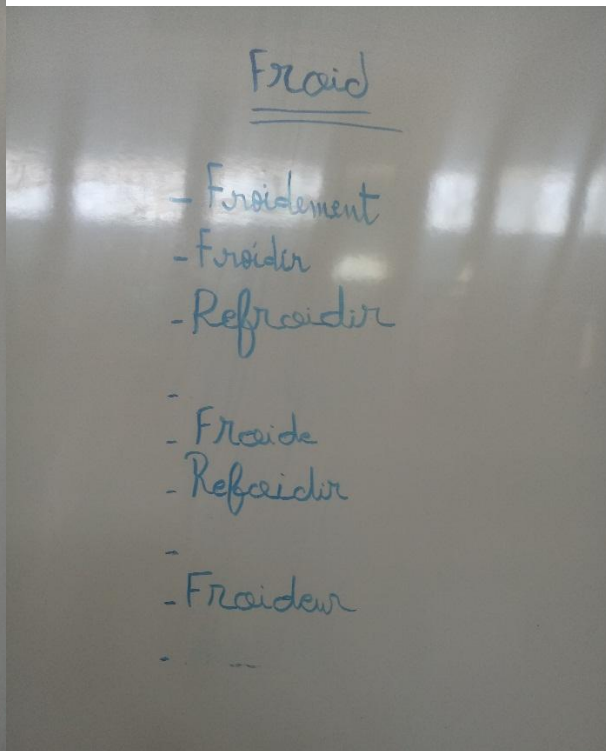 Froid
- Froidement
- Froidir
- Refroidir
-
- Froide
- Refoidir
-
- Froideur
- ...